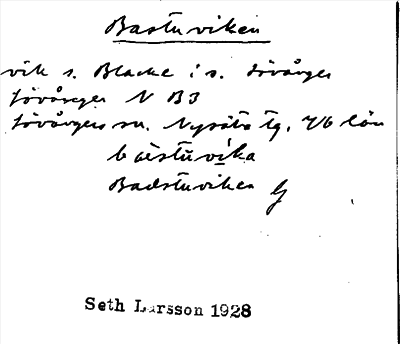 Bastuviken
vik s. Blacke i s. Sövånger
Sövånger N B3
Sövångers sn. Nysätra tg. Vb län
bastuvika
Badstuviken G
Seth Larsson 1928